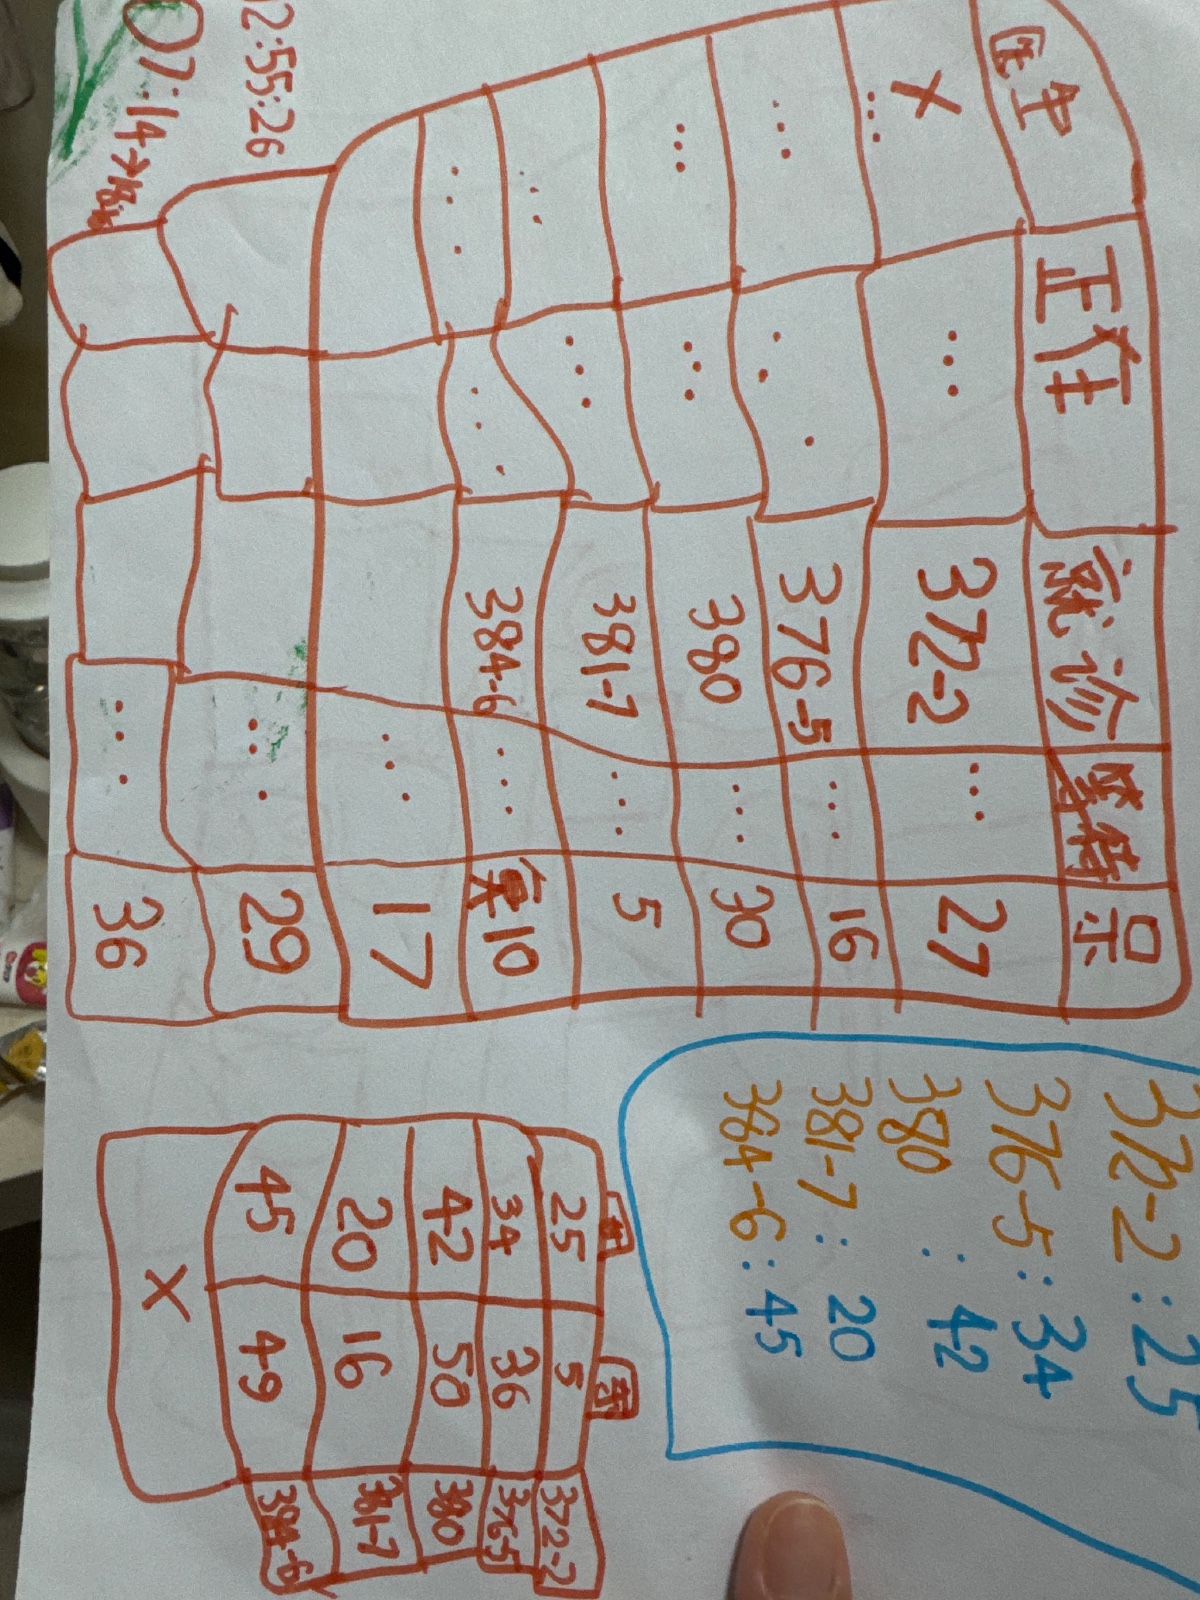 医生 正在 就诊 等待 号
× ... 372-2 ... 27
... ... 376-5 ... 16
... ... 380 ... 30
... ... 381-7 ... 5
... ... 384-6 ... 10
... 17
... 29
... 36
02:55:26
07:14→
372-2:25
376-5:34
380:42
381-7:20
384-6:45
25 5 372-2
34 36 376-5
42 50 380
20 16 381-7
45 49 384-6
×